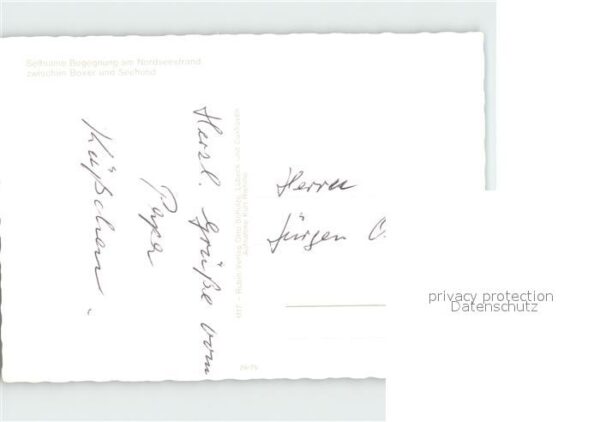 Seltsame Begegnung am Nordseestrand
zwischen Boxer und Seehund
Herzl. Grüße vom
Papa
Küßchen.
Herrn
Jürgen C.
privacy protection
Datenschutz